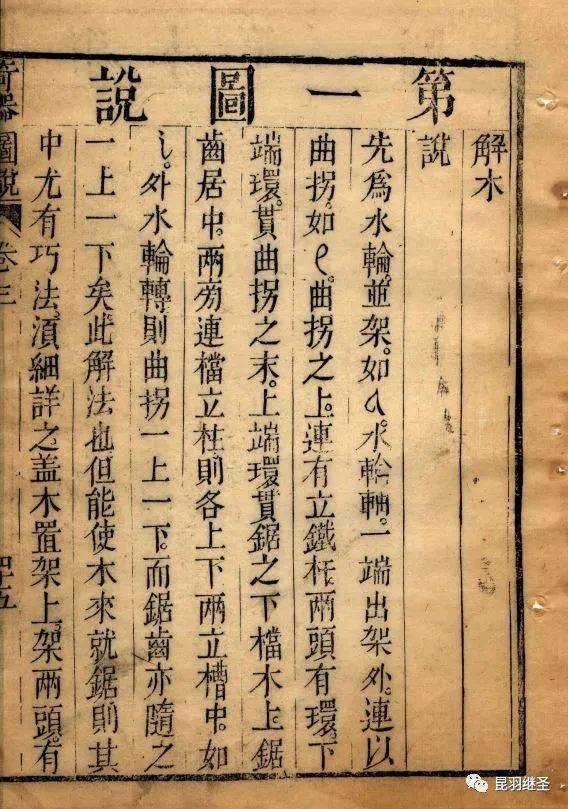 第一圖說
解木
說
先爲水輪。並架。如a。水輪軸。一端出架外。連以
曲拐。如e。曲拐之上。連有立鐵杔。兩頭有環。下
端環。貫曲拐之末。上端環貫鋸之下檔木上。鋸
齒居中。兩旁連檔立柱則各上下兩立槽中。如
i。外水輪轉則曲拐一上一下。而鋸齒亦隨之
一上一下矣。此解法也但能使木來就鋸則其
中尤有巧法。湏細詳之盖木置架上。架兩頭。有
奇器圖說 卷三 四十五
昆羽继圣